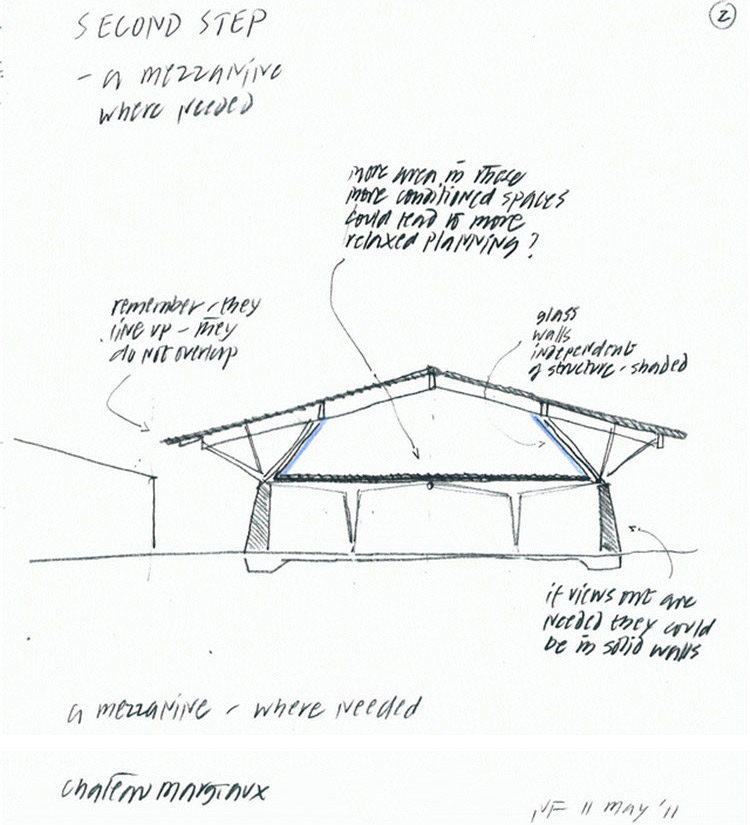 SECOND STEP
2
- a mezzanine
where needed
more area in these
more conditioned spaces
could lead to more
relaxed planning?
remember - they
line up - they
do not overlap
glass
walls
independent
of structure - shaded
if views out are
needed they could
be in solid walls
a mezzanine - where needed
chateau margaux
NF 11 may '11